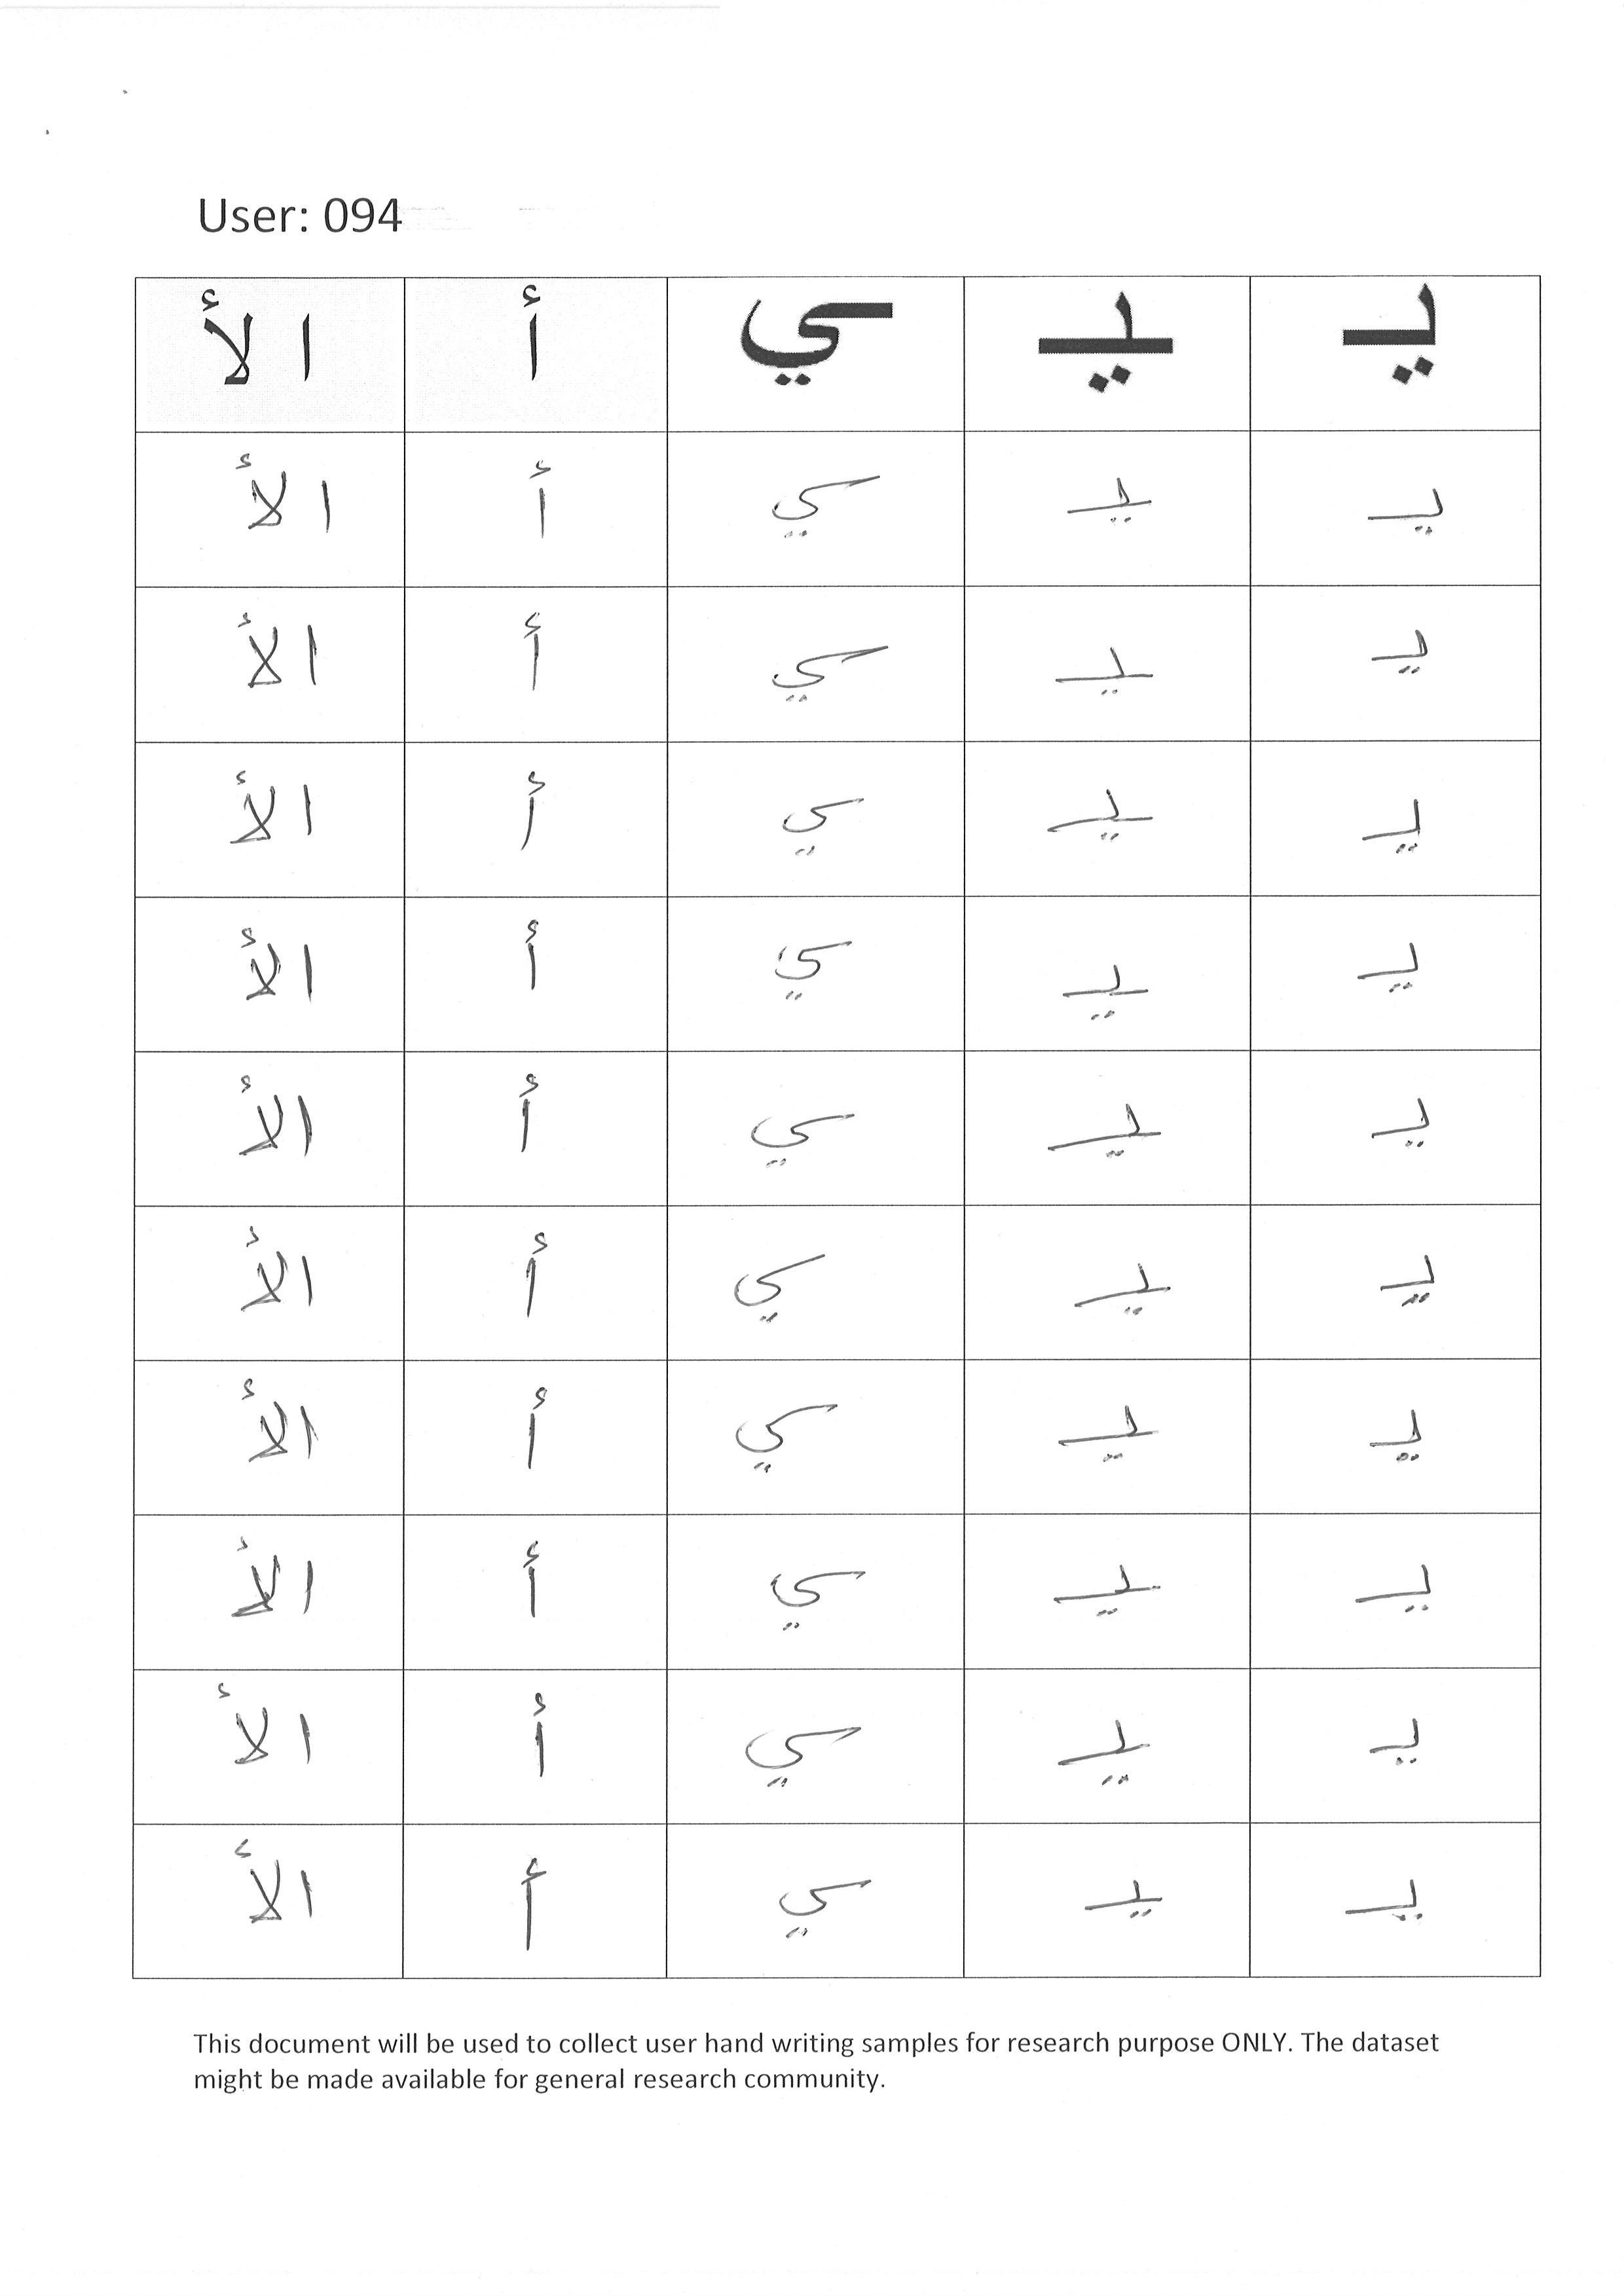 User: 094
يـ ـيـ ـي أ ا لأ
يـ ـيـ ـي أ ا لأ
يـ ـيـ ـي أ ا لأ
يـ ـيـ ـي أ ا لأ
يـ ـيـ ـي أ ا لأ
يـ ـيـ ـي أ ا لأ
يـ ـيـ ـي أ ا لأ
يـ ـيـ ـي أ ا لأ
يـ ـيـ ـي أ ا لأ
يـ ـيـ ـي أ ا لأ
يـ ـيـ ـي أ ا لأ
This document will be used to collect user hand writing samples for research purpose ONLY. The dataset
might be made available for general research community.